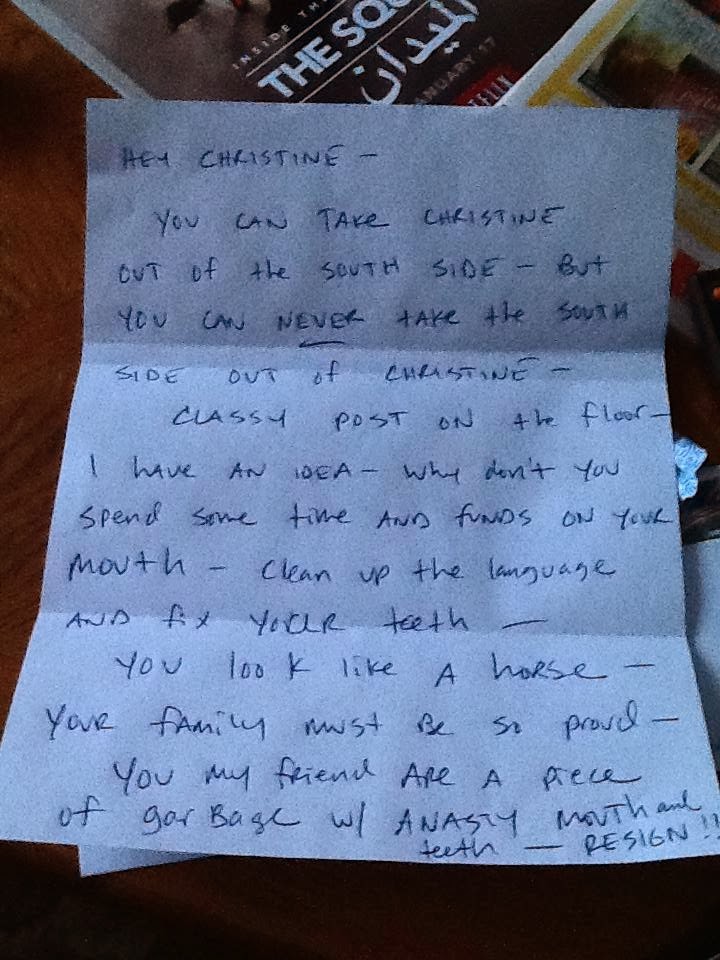 INSIDE TH
THE SQU
الميدان
ANUARY 17
NETFLIX
HEY CHRISTINE —
YOU CAN TAKE CHRISTINE
OUT of the SOUTH SIDE — BUT
YOU CAN NEVER take the SOUTH
SIDE OUT of CHRISTINE —
CLASSY POST ON the floor—
I have AN IDEA — Why don't YOU
spend some time AND fUNDS ON YOUR
MOUTH — Clean up the language
AND fix YOUR teeth —
YOU look like A horse —
YOUR fAMily must Be so proud —
YOU my friend ARE A piece
of garBage w/ A NASTY MOUTH and
teeth — RESIGN!!